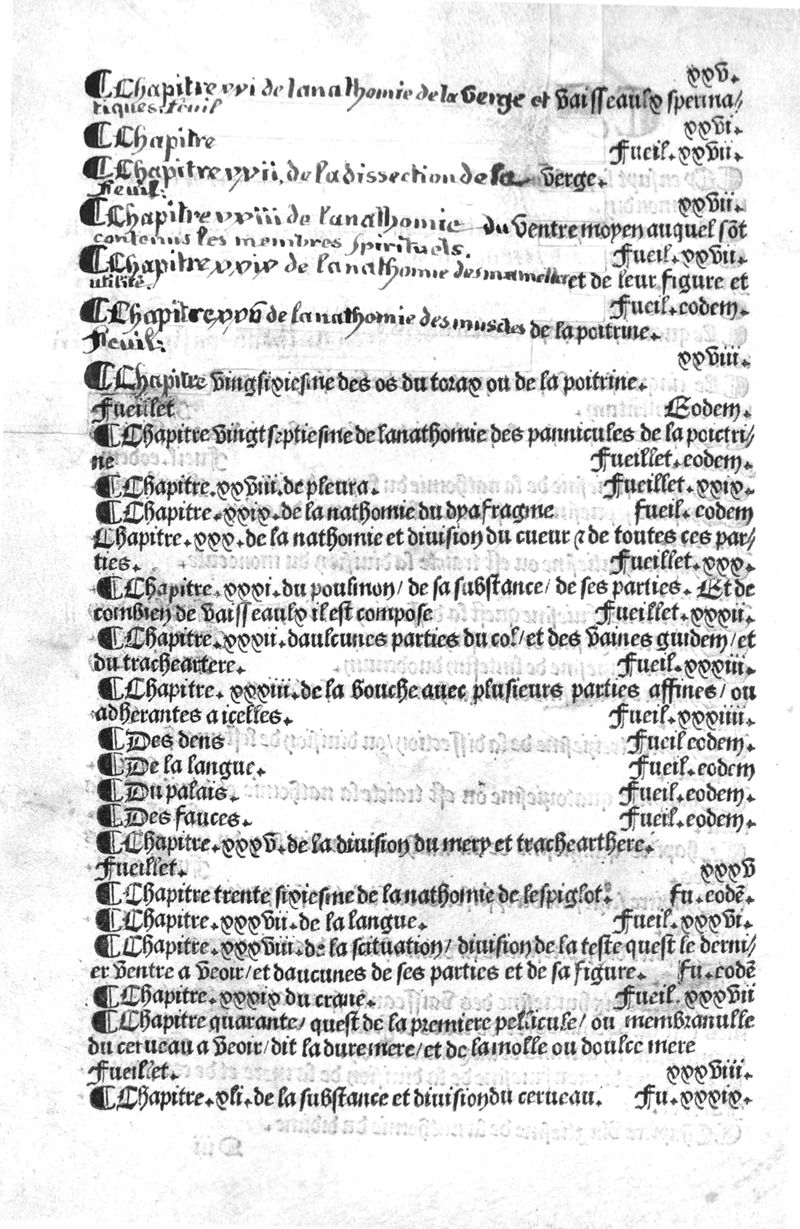 xxv.
¶Chapitre xxi de lanathomie de la verge et vaisseaulx sperma/
tiques. feuil
xxvi.
¶Chapitre
Fueil. xxvii.
¶Chapitre xxii, de la dissection de la verge.
Feuil:
xxvii.
¶Chapitre xxiii de lanathomie du ventre moyen auquel sõt
contenus les membres spirituels.
Fueil. xxvii.
¶Chapitre xxiv de lanathomie des mamelles et de leur figure et
utilité.
Fueil. eodem.
¶Chapitre xxv de lanathomie des muscles de la poitrine.
Feuil:
xxviii.
¶Chapitre vingsixiesme des os du torax ou de la poitrine.
Fueillet Eodem.
¶Chapitre vingt septiesme de lanathomie des pannicules de la poictri/
ne Fueillet. eodem.
¶Chapitre. xxviii. de pleura. Fueillet. xxix.
¶Chapitre. xxix. de la nathomie du dyafragme fueil. eodem
Chapitre. xxx. de la nathomie et division du cueur ⁊ de toutes ces par/
ties. Fueillet. xxx.
¶Chapitre. xxxi. du poulmon/ de sa substance/ de ses parties. Et de
combien de vaisseaulx il est compose Fueillet. xxxii.
¶Chapitre. xxxii. daulcunes parties du col/ et des vaines guidem/ et
du tracheartere. Fueil. xxxiii.
¶Chapitre. xxxiii. de la bouche avec plusieurs parties affines/ ou
adherantes a icelles. Fueil. xxxiiii.
¶Des dens Fueil eodem.
¶De la langue. Fueil. eodem
¶Du palais. Fueil. eodem.
¶Des fauces. Fueil. eodem.
¶Chapitre. xxxv. de la division du mery et trachearthere.
Fueillet. xxxv
¶Chapitre trente sixiesme de la nathomie de lespiglot. Fu. eodẽ.
¶Chapitre. xxxvii. de la langue. Fueil. xxxvi.
¶Chapitre. xxxviii. de la scituation/ division de la teste quest le derni/
er ventre a veoir/ et daucunes de ses parties et de sa figure. Fu. eodẽ
¶Chapitre. xxxix du crane. Fueil. xxxvii
¶Chapitre quarante/ quest de la premiere pellicule/ ou membranulle
du cerveau a veoir/ dit la dure mere/ et de la molle ou doulce mere
Fueillet. xxxviii.
¶Chapitre. xli. de la substance et division du cerveau. Fu. xxxix.